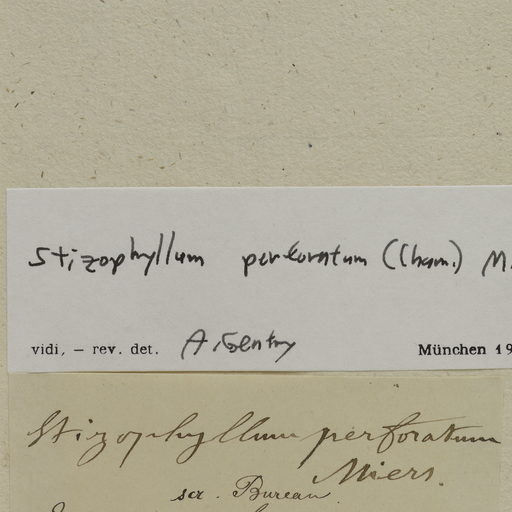 Stizophyllum perforatum (Cham.) M.
vidi, — rev. det. A. Gentry München 19
Stizophyllum perforatum
Miers.
scr. Bureau.